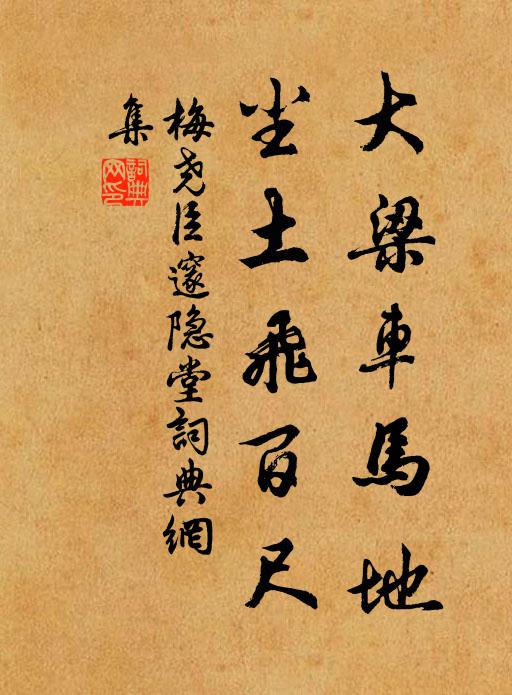 大梁車馬地
尘土飛百尺
梅尧臣邃隐堂詞典網
集
詞典网印